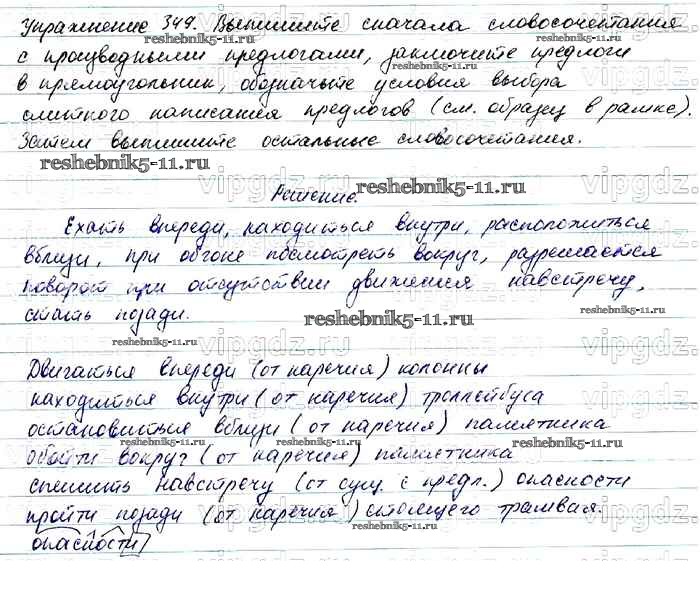 Упражнение 349. Выпишите сначала словосочетания
с производными предлогами, заключите предлоги
в прямоугольник, обозначьте условия выбора
слитного написания предлогов (см. образец в рамке).
Затем выпишите остальные словосочетания.
Решение.
Ехать впереди, находиться внутри, расположиться
вблизи, при обгоне посмотреть вокруг, разрешается
поворот при отсутствии движения навстречу,
стать позади.
Двигаться впереди (от наречия) колонны
находиться внутри (от наречия) троллейбуса
остановиться вблизи (от наречия) памятника
обойти вокруг (от наречия) памятника
спешить навстречу (от сущ. с предл.) опасности
пройти позади (от наречия) стоящего трамвая.
опасности